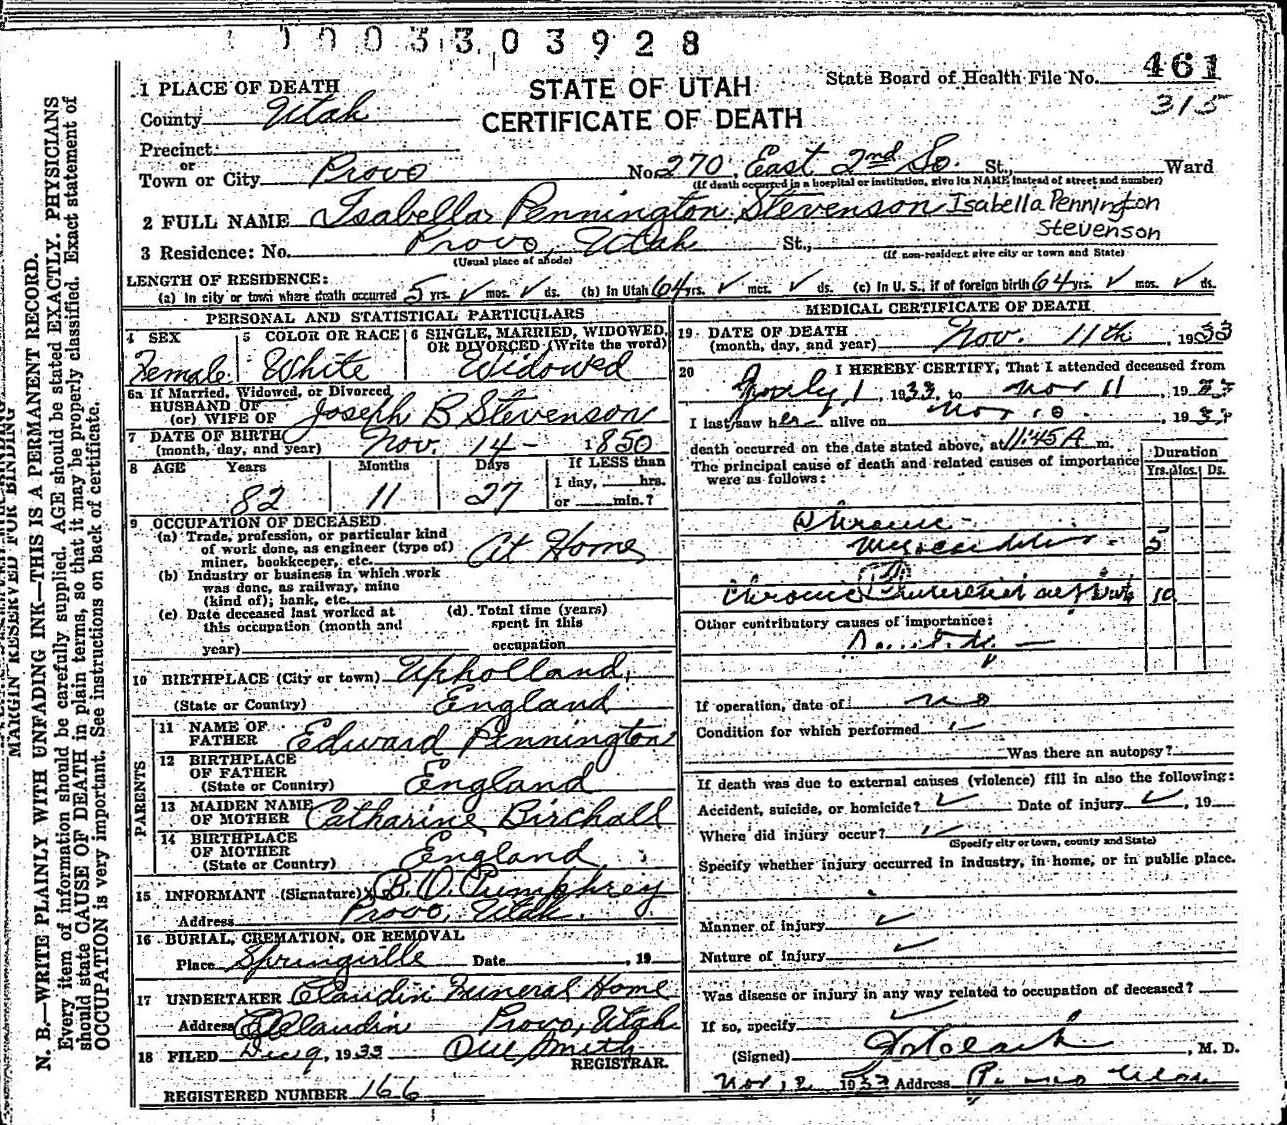 1003303928
STATE OF UTAH
CERTIFICATE OF DEATH
State Board of Health File No. 461
315
1 PLACE OF DEATH
County Utah
Precinct
or
Town or City Provo No. 270 East 2nd So. St., Ward
(If death occurred in a hospital or institution, give its NAME instead of street and number)
2 FULL NAME Isabella Pennington Stevenson Isabella Pennington
Stevenson
3 Residence: No. Provo, Utah St.,
(Usual place of abode) (If non-resident give city or town and State)
LENGTH OF RESIDENCE:
(a) In city or town where death occurred 5 yrs. ✓ mos. ✓ ds. (b) In Utah 64 yrs. ✓ mos. ✓ ds. (c) In U. S., if of foreign birth 64 yrs. ✓ mos. ✓ ds.
PERSONAL AND STATISTICAL PARTICULARS
4 SEX
Female
5 COLOR OR RACE
White
6 SINGLE, MARRIED, WIDOWED,
OR DIVORCED (Write the word)
Widowed
6a If Married, Widowed, or Divorced
HUSBAND OF
(or) WIFE OF Joseph B Stevenson
7 DATE OF BIRTH
(month, day, and year) Nov. 14 - 1850
8 AGE Years Months Days If LESS than
1 day, hrs.
or min.?
82 11 27
9 OCCUPATION OF DECEASED
(a) Trade, profession, or particular kind
of work done, as engineer (type of)
miner, bookkeeper, etc. At Home
(b) Industry or business in which work
was done, as railway, mine
(kind of); bank, etc.
(c) Date deceased last worked at
this occupation (month and
year)
(d). Total time (years)
spent in this
occupation
10 BIRTHPLACE (City or town) Upholland,
(State or Country) England
PARENTS
11 NAME OF
FATHER Edward Pennington
12 BIRTHPLACE
OF FATHER
(State or Country) England
13 MAIDEN NAME
OF MOTHER Catharine Birchall
14 BIRTHPLACE
OF MOTHER
(State or Country) England
15 INFORMANT (Signature) B. O. Pumphrey
Address Provo, Utah.
16 BURIAL, CREMATION, OR REMOVAL
Place Springville Date , 19
17 UNDERTAKER Claudin Funeral Home
Address Claudin Provo, Utah
18 FILED Dec 9, 1933 Smith
REGISTRAR.
REGISTERED NUMBER 166
MEDICAL CERTIFICATE OF DEATH
19 DATE OF DEATH
(month, day, and year) Nov. 11th, 1933
20 I HEREBY CERTIFY, That I attended deceased from
1, 1933 to Nov 11, 1933
I last saw her alive on Nov 10, 1933
death occurred on the date stated above, at 11:45 A m.
The principal cause of death and related causes of importance
were as follows:
Duration
Yrs. Mos. Ds.
Chronic
Myocarditis - 5
Chronic 10
Other contributory causes of importance:
If operation, date of no
Condition for which performed
Was there an autopsy?
If death was due to external causes (violence) fill in also the following:
Accident, suicide, or homicide? ✓ Date of injury ✓, 19
Where did injury occur? ✓
(Specify city or town, county and State)
Specify whether injury occurred in industry, in home, or in public place.
Manner of injury ✓
Nature of injury ✓
Was disease or injury in any way related to occupation of deceased?
If so, specify ✓
(Signed) , M. D.
Nov, 1933 Address Provo Utah
MARGIN RESERVED FOR BINDING
N. B.—WRITE PLAINLY WITH UNFADING INK—THIS IS A PERMANENT RECORD.
Every item of information should be carefully supplied. AGE should be stated EXACTLY. PHYSICIANS
should state CAUSE OF DEATH in plain terms, so that it may be properly classified. Exact statement of
OCCUPATION is very important. See instructions on back of certificate.